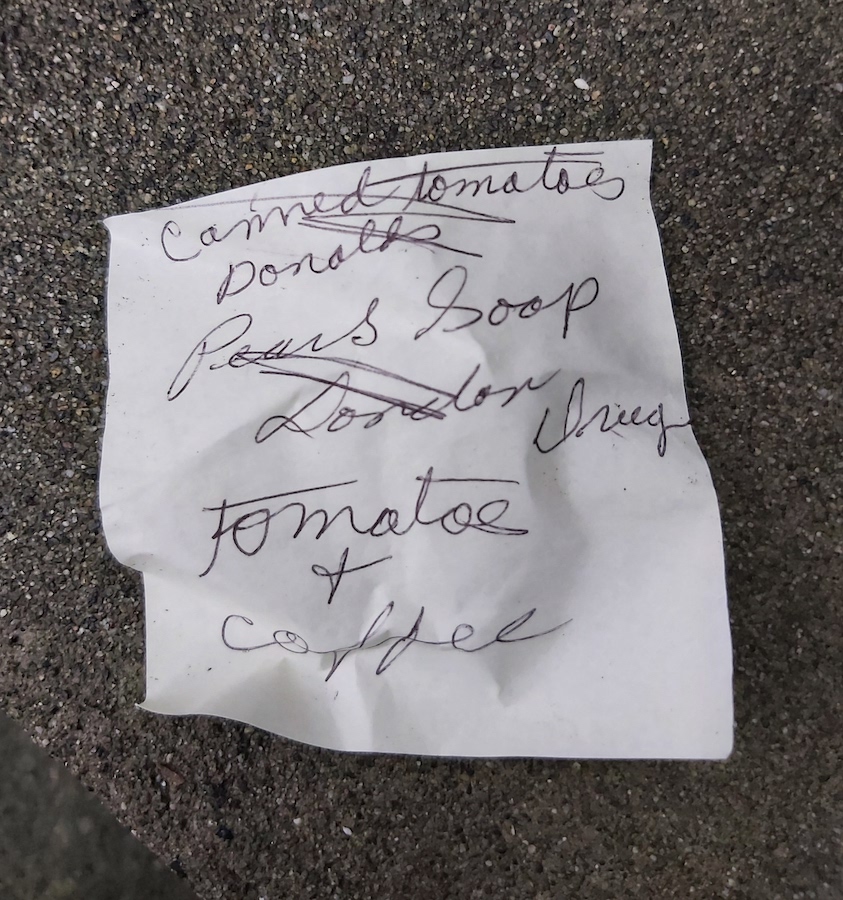 Canned tomatoes
Donalds
Pears Soap
London Drug
tomatoe
+
coffee